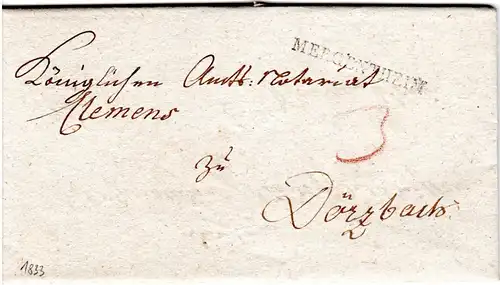 MERGENTHEIM
Königlichen Amts-Notariat
Clemens
3
zu
Dörzbach
1833